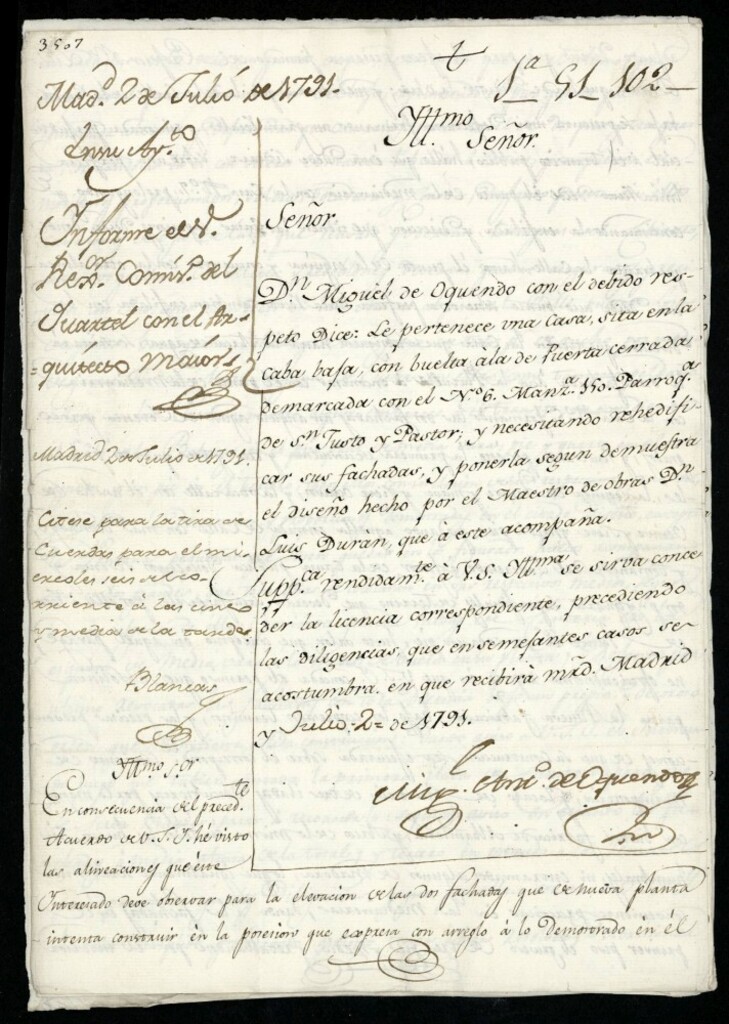 3507
Mad.d 2 de Julio de 1791.
1a 51 102
Yttmo
Señor.
En su Ay.to
Señor.
Informe el S.
Rexor. Comis.o del
Quartel con el Ar-
quitecto Maior
D.n Miguel de Oquendo con el debido res-
peto Dice: Le pertenece vna Casa, sita en la
caba baja, con buelta á la de Puerta cerrada
demarcada con el N.o 6. Manz.a 150. Parroq.a
de S.n Justo y Pastor; y necesitando rehedifi-
car sus fachadas, y ponerla segun demuestra
el diseño hecho por el Maestro de obras D.n
Luis Durán, que á este acompaña.
Supp.ca rendidam.te à V.S. Yttma se sirva conce
der la licencia correspondiente, precediendo
las diligencias, que en semejantes casos se
acostumbra. en que recibirà mrd. Madrid
y Julio 2 de 1791.
Mig.l Ant.o de Oquendo
Madrid 2 de Julio de 1791.
Citese para la tira de
Cuerdas para el mi-
ercoles seis del co-
rriente á las cinco
y media de la tarde.
Blancas
Yttmo. S.or
En consecuencia del preced.te
Acuerdo de V.S.I. hé visto
las alineaciones que éste
Interesado deve observar para la elevacion de las dos fachadas que de nueva planta
intenta construir en la posesion que expresa con arreglo á lo Demostrado en él